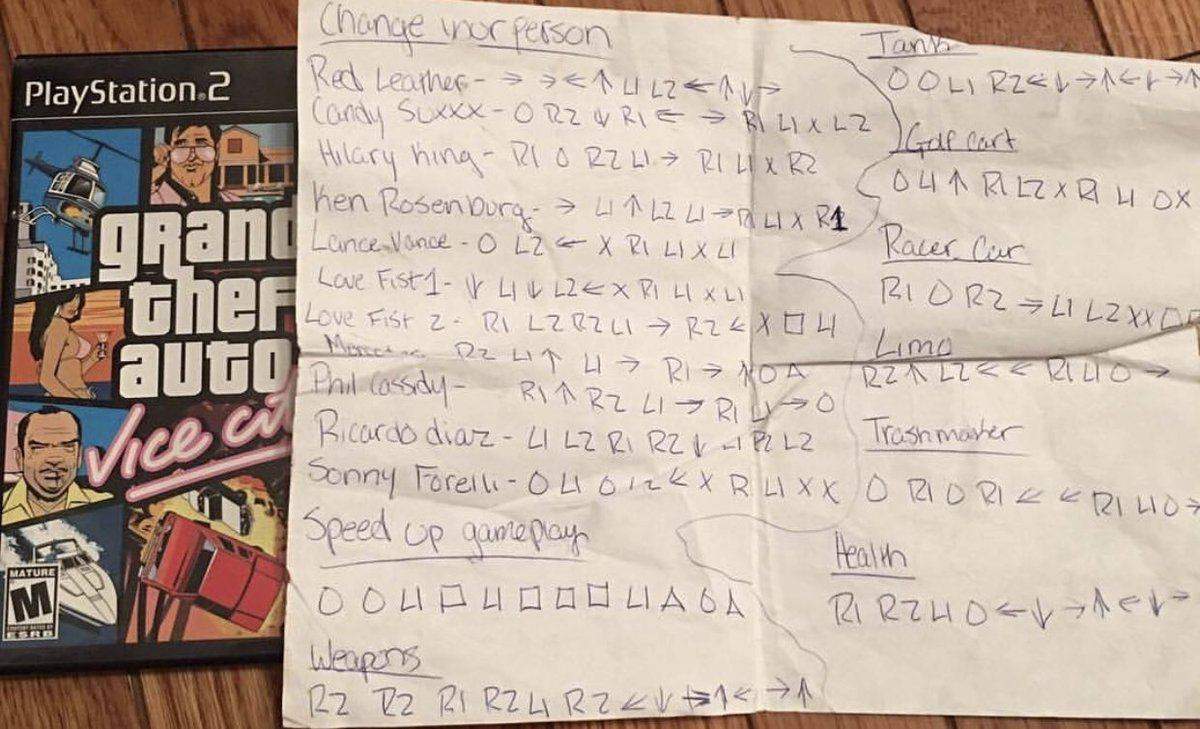 PlayStation.2
grand
thef
auto
Vice cit
MATURE
M
CONTENT RATED BY
ESRB
Change person
Red Leather - → → ← ↑ L1 L2 ← ↑ ↓ →
Candy Suxxx - O R2 ↓ R1 ← → R1 L1 X L2
Hilary King - R1 O R2 L1 → R1 L1 X R2
Ken Rosenburg - → L1 ↑ L2 L1 → R1 L1 X R1
Lance Vance - O L2 ← X R1 L1 X L1
Love Fist 1 - ↓ L1 ↓ L2 ← X R1 L1 X L1
Love Fist 2 - R1 L2 R2 L1 → R2 ← X □ L1
R2 L1 ↑ L1 → R1 → O
Phil Cassidy - R1 ↑ R2 L1 → R1 L1 → O
Ricardo diaz - L1 L2 R1 R2 ↓ L1 R2 L2
Sonny Forelli - O L1 O L2 ← X R1 L1 X X
Speed up gameplay
O O L1 □ L1 □ □ □ L1 △ O △
Weapons
R2 R2 R1 R2 L1 R2 ← ↓ → ↑ ← → ↑
Tank
O O L1 R2 ← ↓ → ↑ ← ↓ → ↑
Golf cart
O L1 ↑ R1 L2 X R1 L1 O X
Racer Car
R1 O R2 → L1 L2 X X □ □
Limo
R2 ↑ L2 ← ← R1 L1 O →
Trashmaster
O R1 O R1 ← ← R1 L1 O →
Health
R1 R2 L1 O ← ↓ → ↑ ← ↓ →